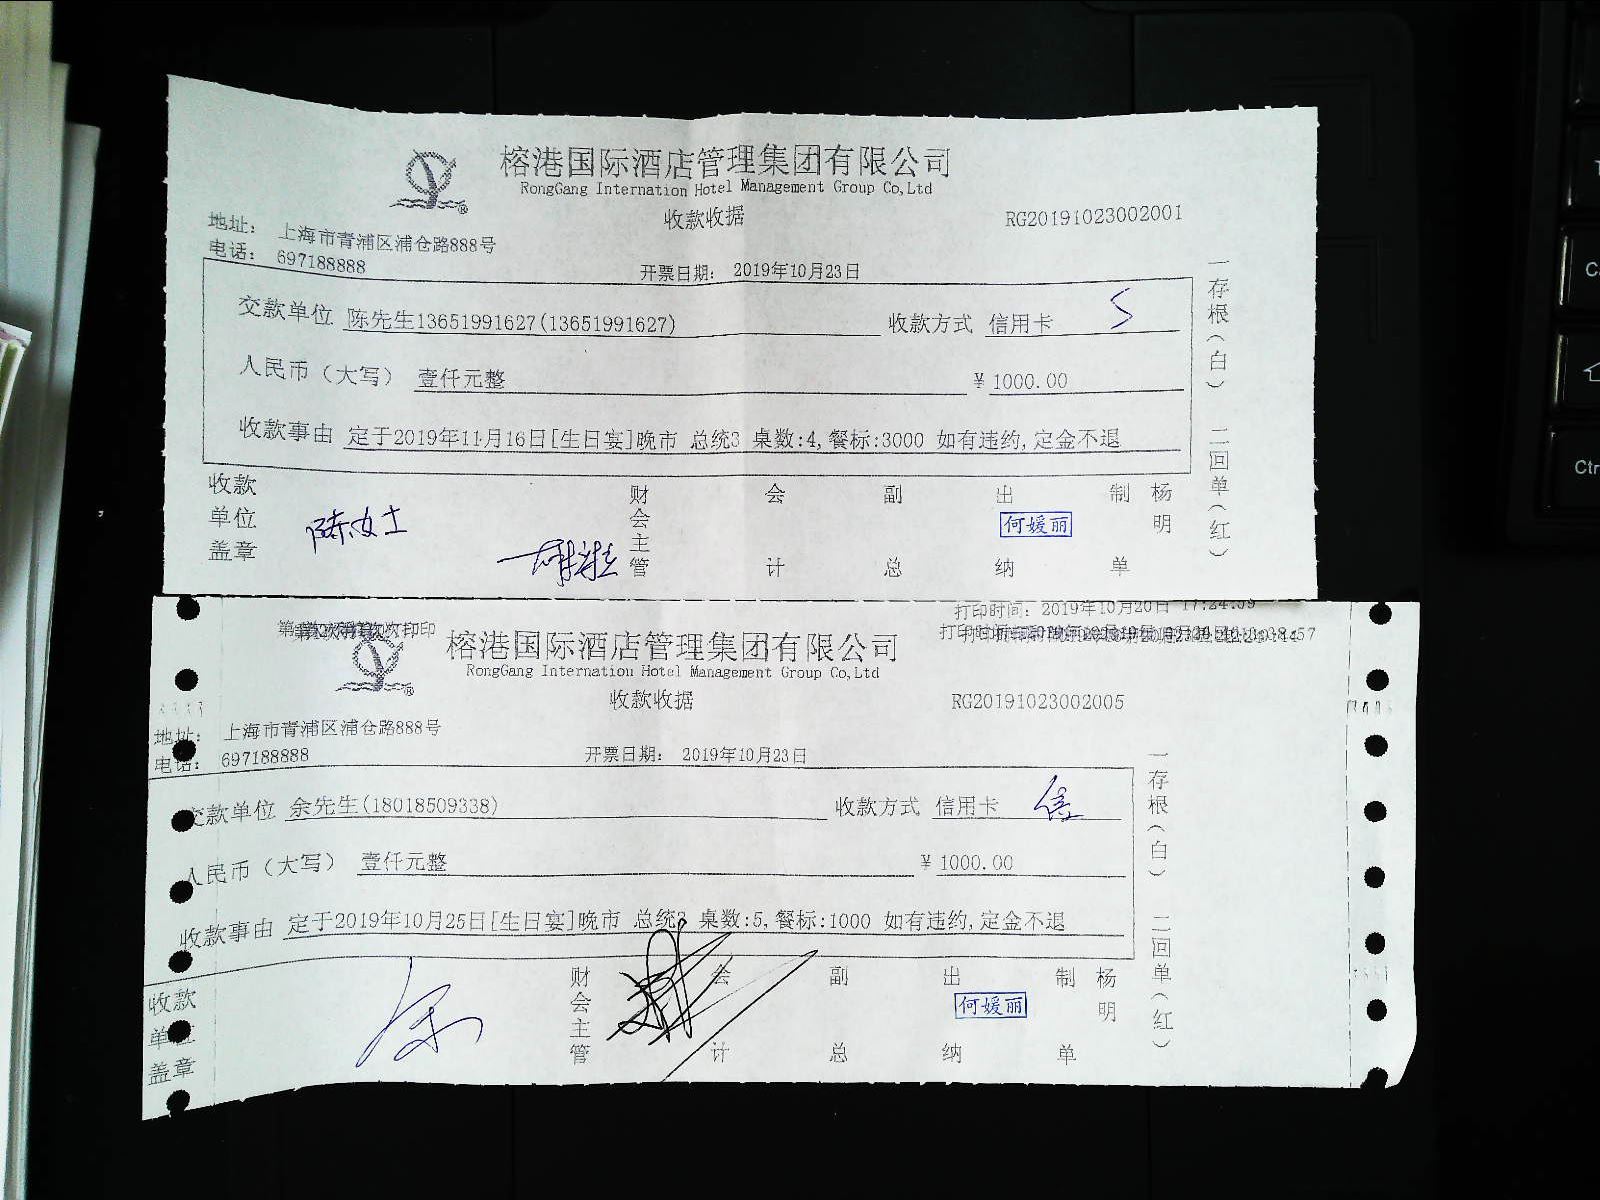 榕港国际酒店管理集团有限公司
RongGang Internation Hotel Management Group Co,Ltd
收款收据
RG20191023002001
地址： 上海市青浦区浦仓路888号
电话： 697188888
开票日期： 2019年10月23日
交款单位 陈先生13651991627(13651991627) 收款方式 信用卡
人民币（大写） 壹仟元整 ¥ 1000.00
收款事由 定于2019年11月16日[生日宴]晚市 总统3 桌数:4,餐标:3000 如有违约,定金不退
一存根（白） 二回单（红）
收款单位盖章 陈女士
财会主管 会计 副总 出纳 何媛丽 制单 杨明
打印时间：2019年10月20日 17:24:59
榕港国际酒店管理集团有限公司
RongGang Internation Hotel Management Group Co,Ltd
收款收据
RG20191023002005
地址： 上海市青浦区浦仓路888号
电话： 697188888
开票日期： 2019年10月23日
交款单位 余先生(18018509338) 收款方式 信用卡 信
人民币（大写） 壹仟元整 ¥ 1000.00
收款事由 定于2019年10月25日[生日宴]晚市 总统3 桌数:5,餐标:1000 如有违约,定金不退
一存根（白） 二回单（红）
收款单位盖章
财会主管 会计 副总 出纳 何媛丽 制单 杨明